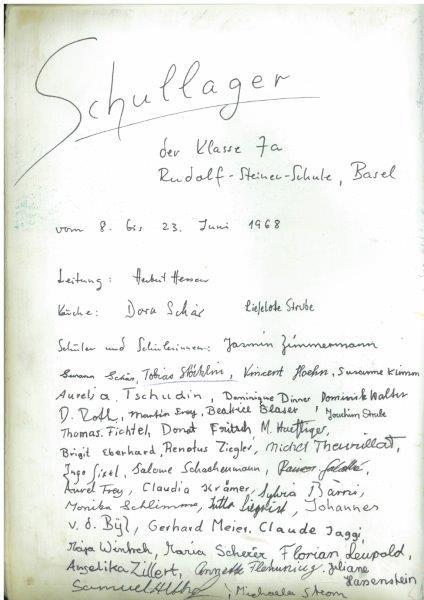 Schullager
der Klasse 7a
Rudolf-Steiner-Schule, Basel
vom 8. bis 23. Juni 1968
Leitung: Herbert Hessen
Küche: Dora Schär Lieselote Strube
Schüler und Schülerinnen: Jasmin Zimmermann
Susann Schär, Tobias Stöcklin, Vincent Hoehn, Susanne Klimm
Aurelia Tschudin, Dominique Dinner Dominik Walter
D. Roth, Martin Frey, Beatrice Blaser, Joachim Strube
Thomas Fichtel, Donat Fritsch, M. Haefliger,
Birgit Eberhard, Renatus Ziegler, Michel Theurillat,
Ingo Gisel, Salome Schachenmann,
Aurel Frey, Claudia Krämer, Sylvia Barni,
Monika Schlimme, Jutta Siegrist, Johannes
v. d. Bÿl, Gerhard Meier, Claude Jaggi,
Maja Wintsch, Maria Scherer, Florian Leupold,
Angelika Zillert, Annette Juliane
Hassenstein
Samuel Michaela Strom